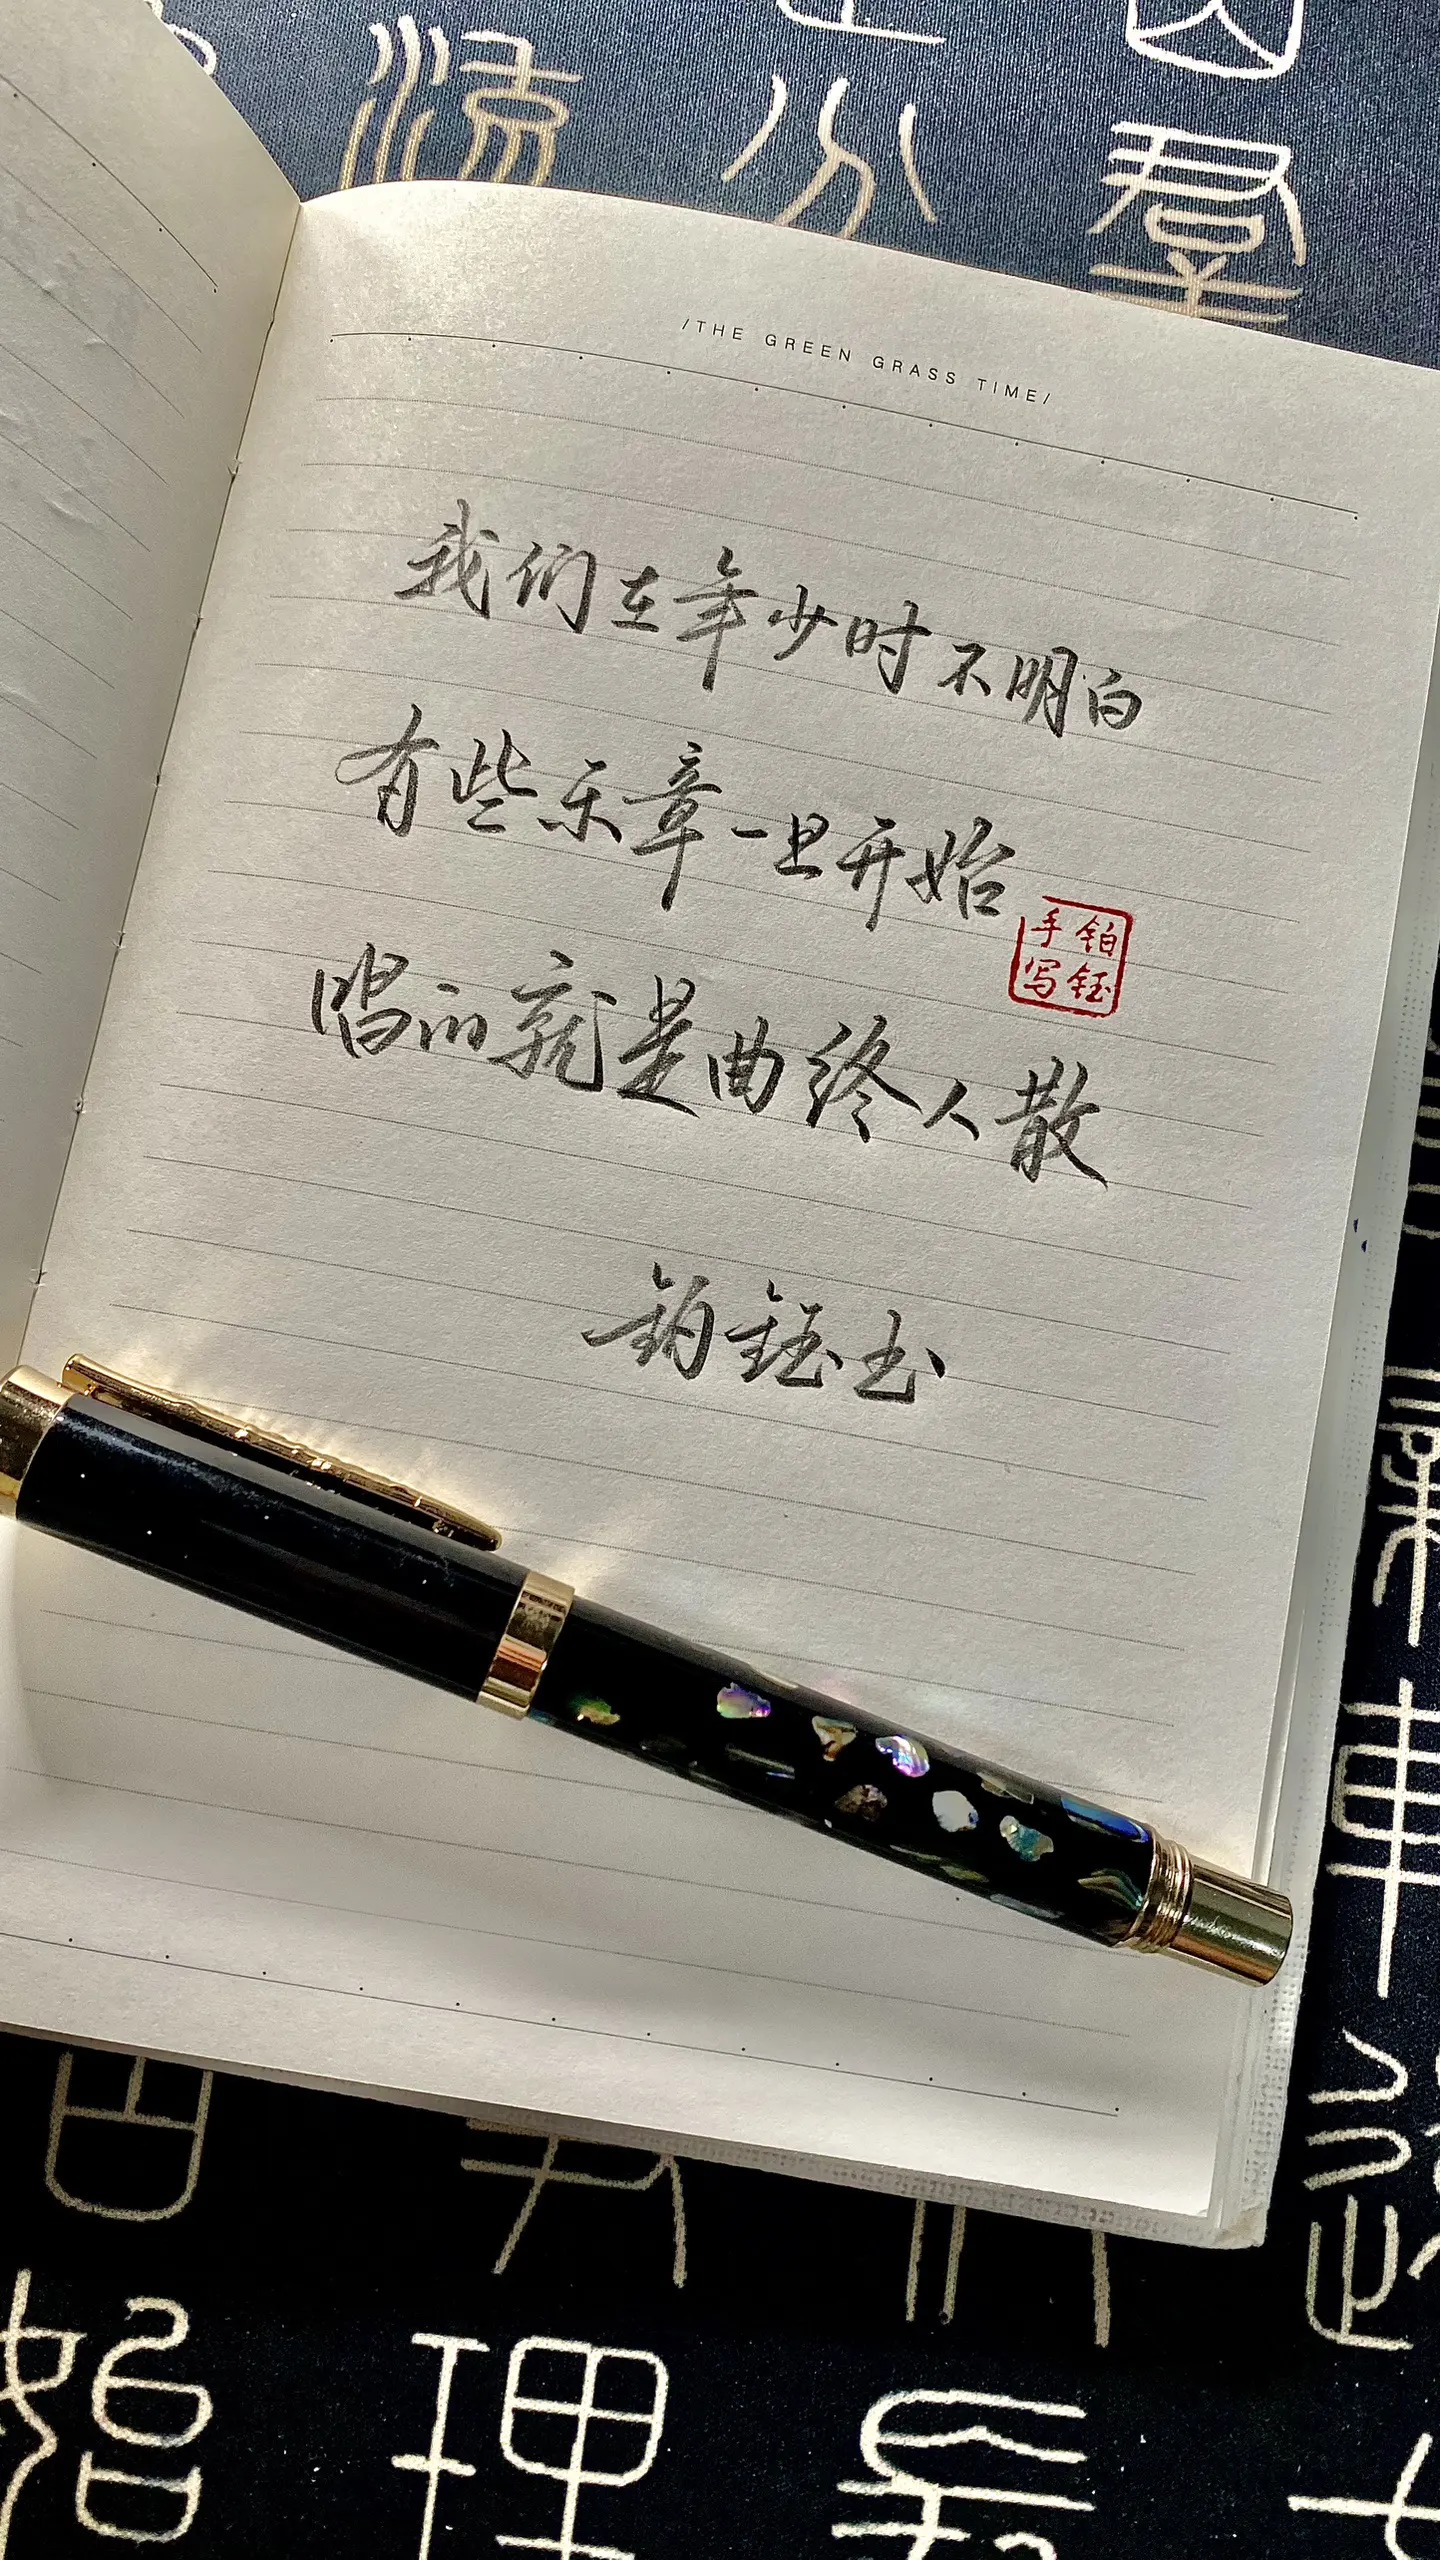 /THE GREEN GRASS TIME/
我们在年少时不明白
有些乐章一旦开始
唱的就是曲终人散
铂钰
手写
铂钰书
理